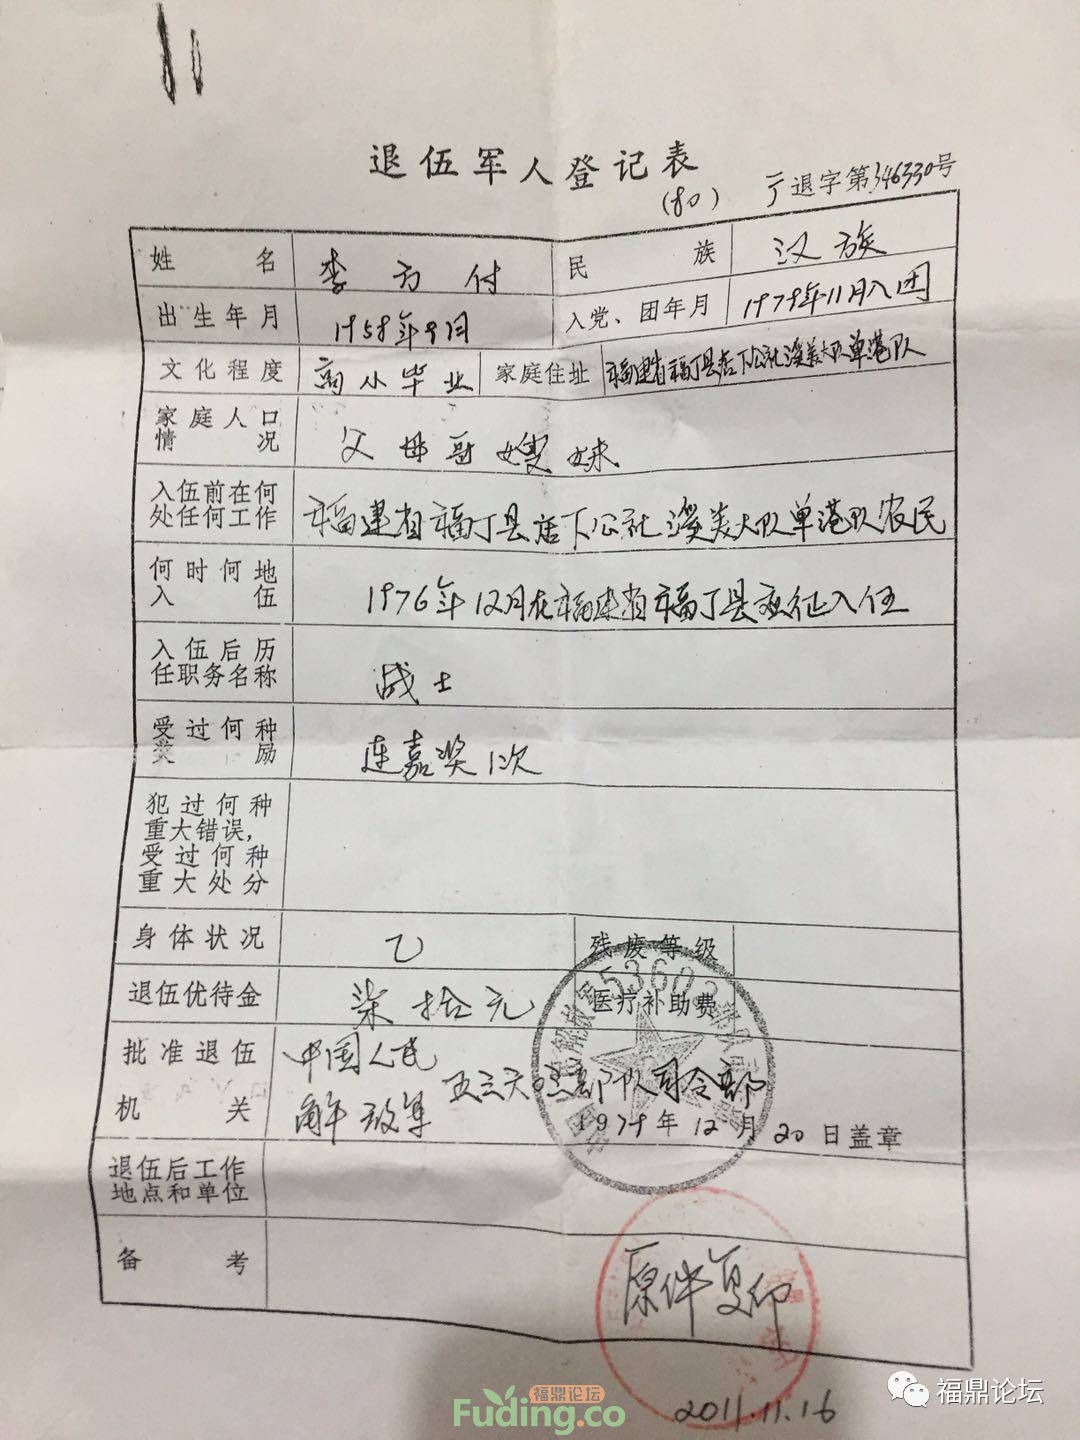 退伍军人登记表
(80) 丁退字第346330号
姓名 李方付 民族 汉族
出生年月 1958年9月 入党、团年月 1979年11月入团
文化程度 高小毕业 家庭住址 福建省福丁县店下公社溪美大队单港队
家庭人口情况 父母哥嫂妹
入伍前在何处任何工作 福建省福丁县店下公社溪美大队单港队农民
何时何地入伍 1976年12月在福建省福丁县应征入伍
入伍后历任职务名称 战士
受过何种奖励 连嘉奖1次
犯过何种重大错误,受过何种重大处分
身体状况 乙 残废等级
退伍优待金 柒拾元 医疗补助费
批准退伍机关 中国人民解放军 五三六〇三部队司令部
1979年12月20日盖章
退伍后工作地点和单位
备考
原件复印
2011.11.16
福鼎论坛
福鼎论坛
Fuding.co